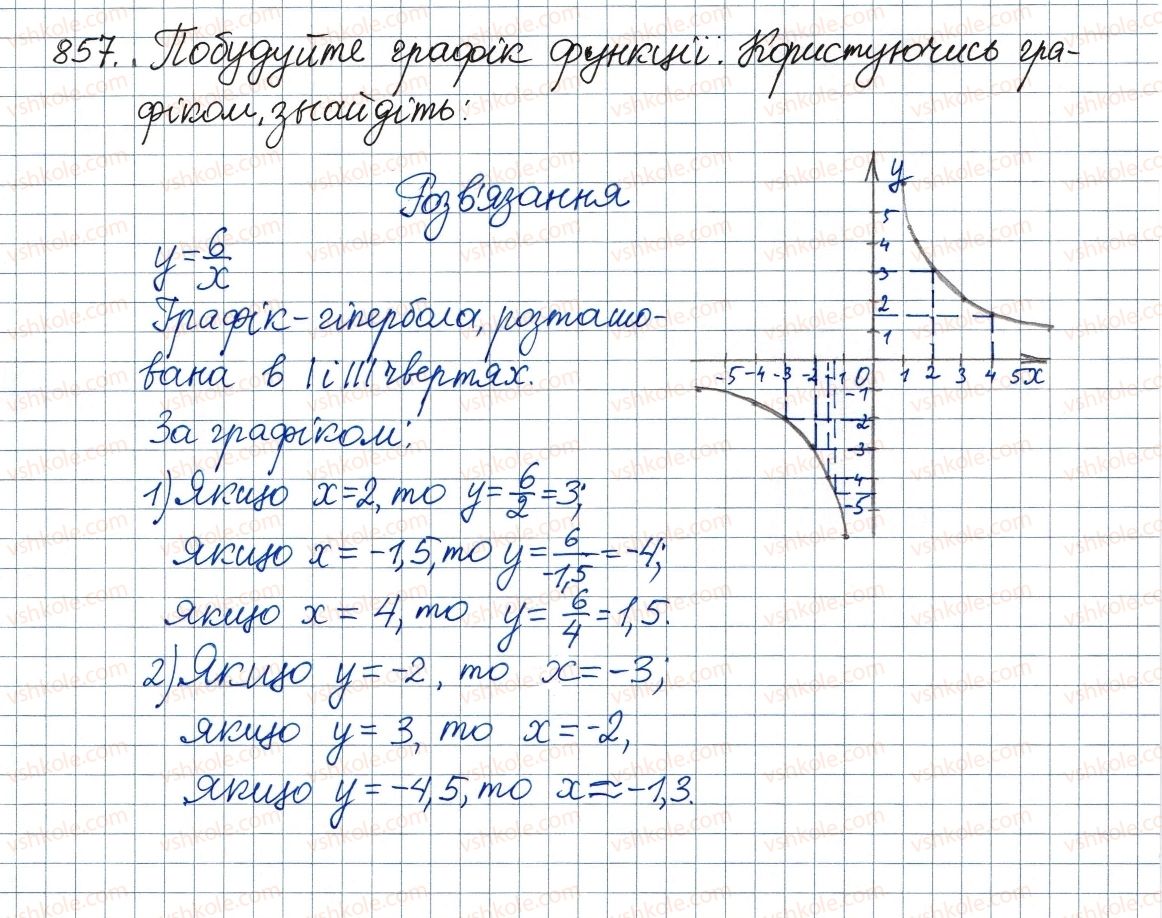 857. Побудуйте графік функції. Користуючись гра-
фіком, знайдіть:
Розв'язання
y = 6/x
Графік - гіпербола, розташо-
вана в I і III чвертях.
За графіком:
1) Якщо x = 2, то y = 6/2 = 3;
якщо x = -1,5, то y = 6/-1,5 = -4;
якщо x = 4, то y = 6/4 = 1,5.
2) Якщо y = -2, то x = -3;
якщо y = 3, то x = -2,
якщо y = -4,5, то x ≈ -1,3.
y
5
4
3
2
1
-5 -4 -3 -2 -1 0 1 2 3 4 5 x
-1
-2
-3
-4
-5
vshkole.com